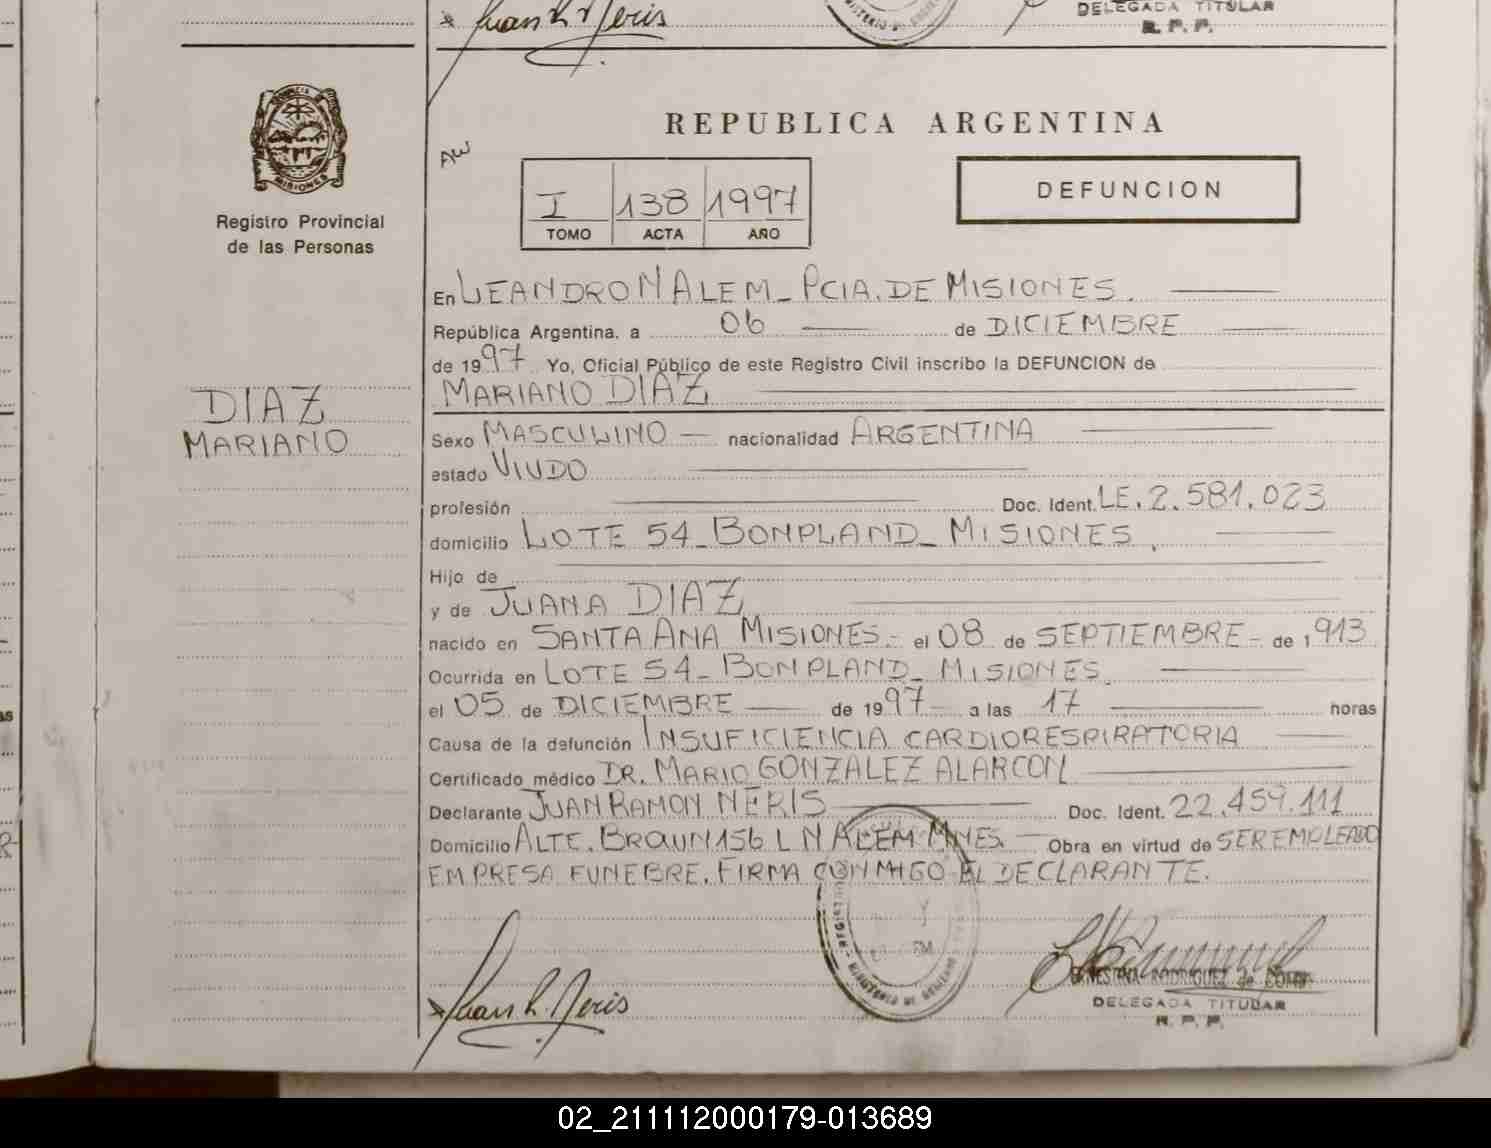 Juan R Neris
DELEGADA TITULAR
R. P. P.
PROVINCIA
MISIONES
Registro Provincial
de las Personas
DIAZ
MARIANO
REPUBLICA ARGENTINA
AW
I 138 1997
TOMO ACTA AÑO
DEFUNCION
En LEANDRO N ALEM_PCIA. DE MISIONES.
República Argentina, a 06 de DICIEMBRE
de 1997 Yo, Oficial Público de este Registro Civil inscribo la DEFUNCION de
MARIANO DIAZ
Sexo MASCULINO — nacionalidad ARGENTINA
estado VIUDO
profesión Doc. Ident. LE. 2.581.023
domicilio LOTE 54_BONPLAND_MISIONES.
Hijo de
y de JUANA DIAZ
nacido en SANTA ANA MISIONES- el 08 de SEPTIEMBRE- de 1913
Ocurrida en LOTE 54-BONPLAND_MISIONES.
el 05 de DICIEMBRE de 1997 a las 17 horas
Causa de la defunción INSUFICIENCIA CARDIORESPIRATORIA
Certificado médico DR. MARIO GONZALEZ ALARCON
Declarante JUAN RAMON NERIS Doc. Ident. 22.459.111
Domicilio ALTE. BROWN 156 L N ALEM MNES. Obra en virtud de SER EMPLEADO
EMPRESA FUNEBRE. FIRMA CONMIGO EL DECLARANTE.
MINISTERIO DE GOBIERNO
Juan R. Neris
RODRIGUEZ de
DELEGADA TITULAR
R. P. P.
02_211112000179-013689